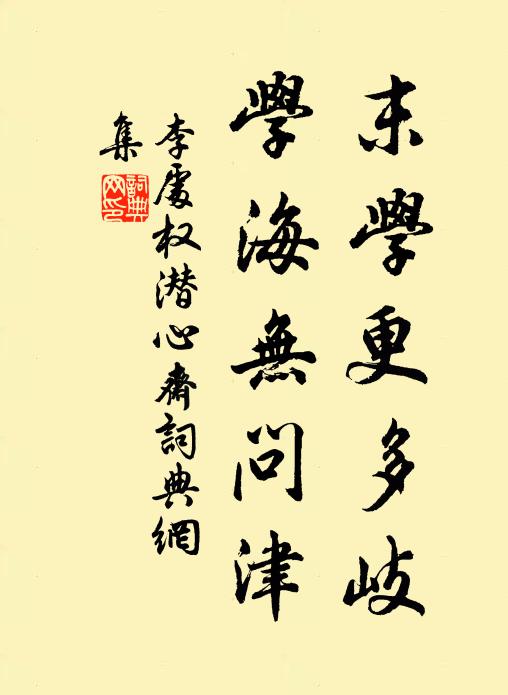 末學更多岐
學海無問津
李處权潜心齋詞典網
集
詞典網印